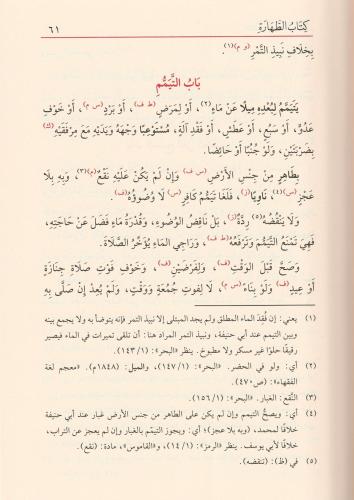 كِتَابُ الطَّهَارَةِ
٦١
بِخِلَافِ نَبِيذِ التَّمْرِ (و م)(١).
بَابُ التَّيَمُّمِ
يَتَيَمَّمُ لِبُعْدِهِ مِيلًا عَنْ مَاءٍ(٢)، أَوْ لِمَرَضٍ (ط ف)، أَوْ بَرْدٍ (س م)، أَوْ خَوْفِ
عَدُوٍّ، أَوْ سَبُعٍ، أَوْ عَطَشٍ، أَوْ فَقْدِ آلَةٍ، مُسْتَوْعِبًا وَجْهَهُ وَيَدَيْهِ مَعَ مِرْفَقَيْهِ (ك)
بِضَرْبَتَيْنِ، وَلَوْ جُنُبًا أَوْ حَائِضًا.
بِطَاهِرٍ مِنْ جِنْسِ الْأَرْضِ (س ف) وَإِنْ لَمْ يَكُنْ عَلَيْهِ نَقْعٌ (م)(٣)، وَبِهِ بِلَا
عَجْزٍ (س)(٤)، نَاوِيًا (ز)، فَلَغَا تَيَمُّمُ كَافِرٍ (س) لَا وُضُوؤُهُ (ف).
وَلَا يَنْقُضُهُ(٥) رِدَّةٌ (ز)، بَلْ نَاقِضُ الْوُضُوءِ، وَقُدْرَةُ مَاءٍ فَضَلَ عَنْ حَاجَتِهِ،
فَهِيَ تَمْنَعُ التَّيَمُّمَ وَتَرْفَعُهُ (ط ف)، وَرَاجِي الْمَاءِ يُؤَخِّرُ الصَّلَاةَ.
وَصَحَّ قَبْلَ الْوَقْتِ (ف)، وَلِفَرْضَيْنِ (ف)، وَخَوْفِ فَوْتِ صَلَاةِ جِنَازَةٍ
أَوْ عِيدٍ (ف) وَلَوْ بِنَاءً (س م)، لَا لِفَوْتِ جُمُعَةٍ وَوَقْتٍ، وَلَمْ يُعِدْ إِنْ صَلَّى بِهِ
(١) يعني: إن فُقِدَ الماء المطلق ولم يجد المبتلى إلا نبيذ التمر فإنه يتوضأ به ولا يجمع بينه
وبين التيمم عند أبي حنيفة، ونبيذ التمر المراد هنا: أن تلقى تميرات في الماء فيصير
رقيقًا حلوًا غير مسكر ولا مطبوخ. ينظر «البحر»: (١/١٤٣).
(٢) أي: ولو في الحضر. «البحر»: (١/١٤٧)، والميل: (١٨٤٨م). «معجم لغة
الفقهاء»: (ص٤٧٠).
(٣) النَّقْع: الغبار. «البحر»: (١/١٥٦).
(٤) أي: ويصحُّ التيمم وإن لم يكن على الطاهر من جنس الأرض غبار عند أبي حنيفة
خلافًا لمحمد، (وبه بلا عجز)؛ أي: ويجوز التيمّم بالغبار وإن لم يعجز عن التراب،
خلافًا لأبي يوسف. ينظر «الرمز»: (١/١٤)، و«القاموس»، مادة: (نقع).
(٥) في (ظ): (تنقضه).